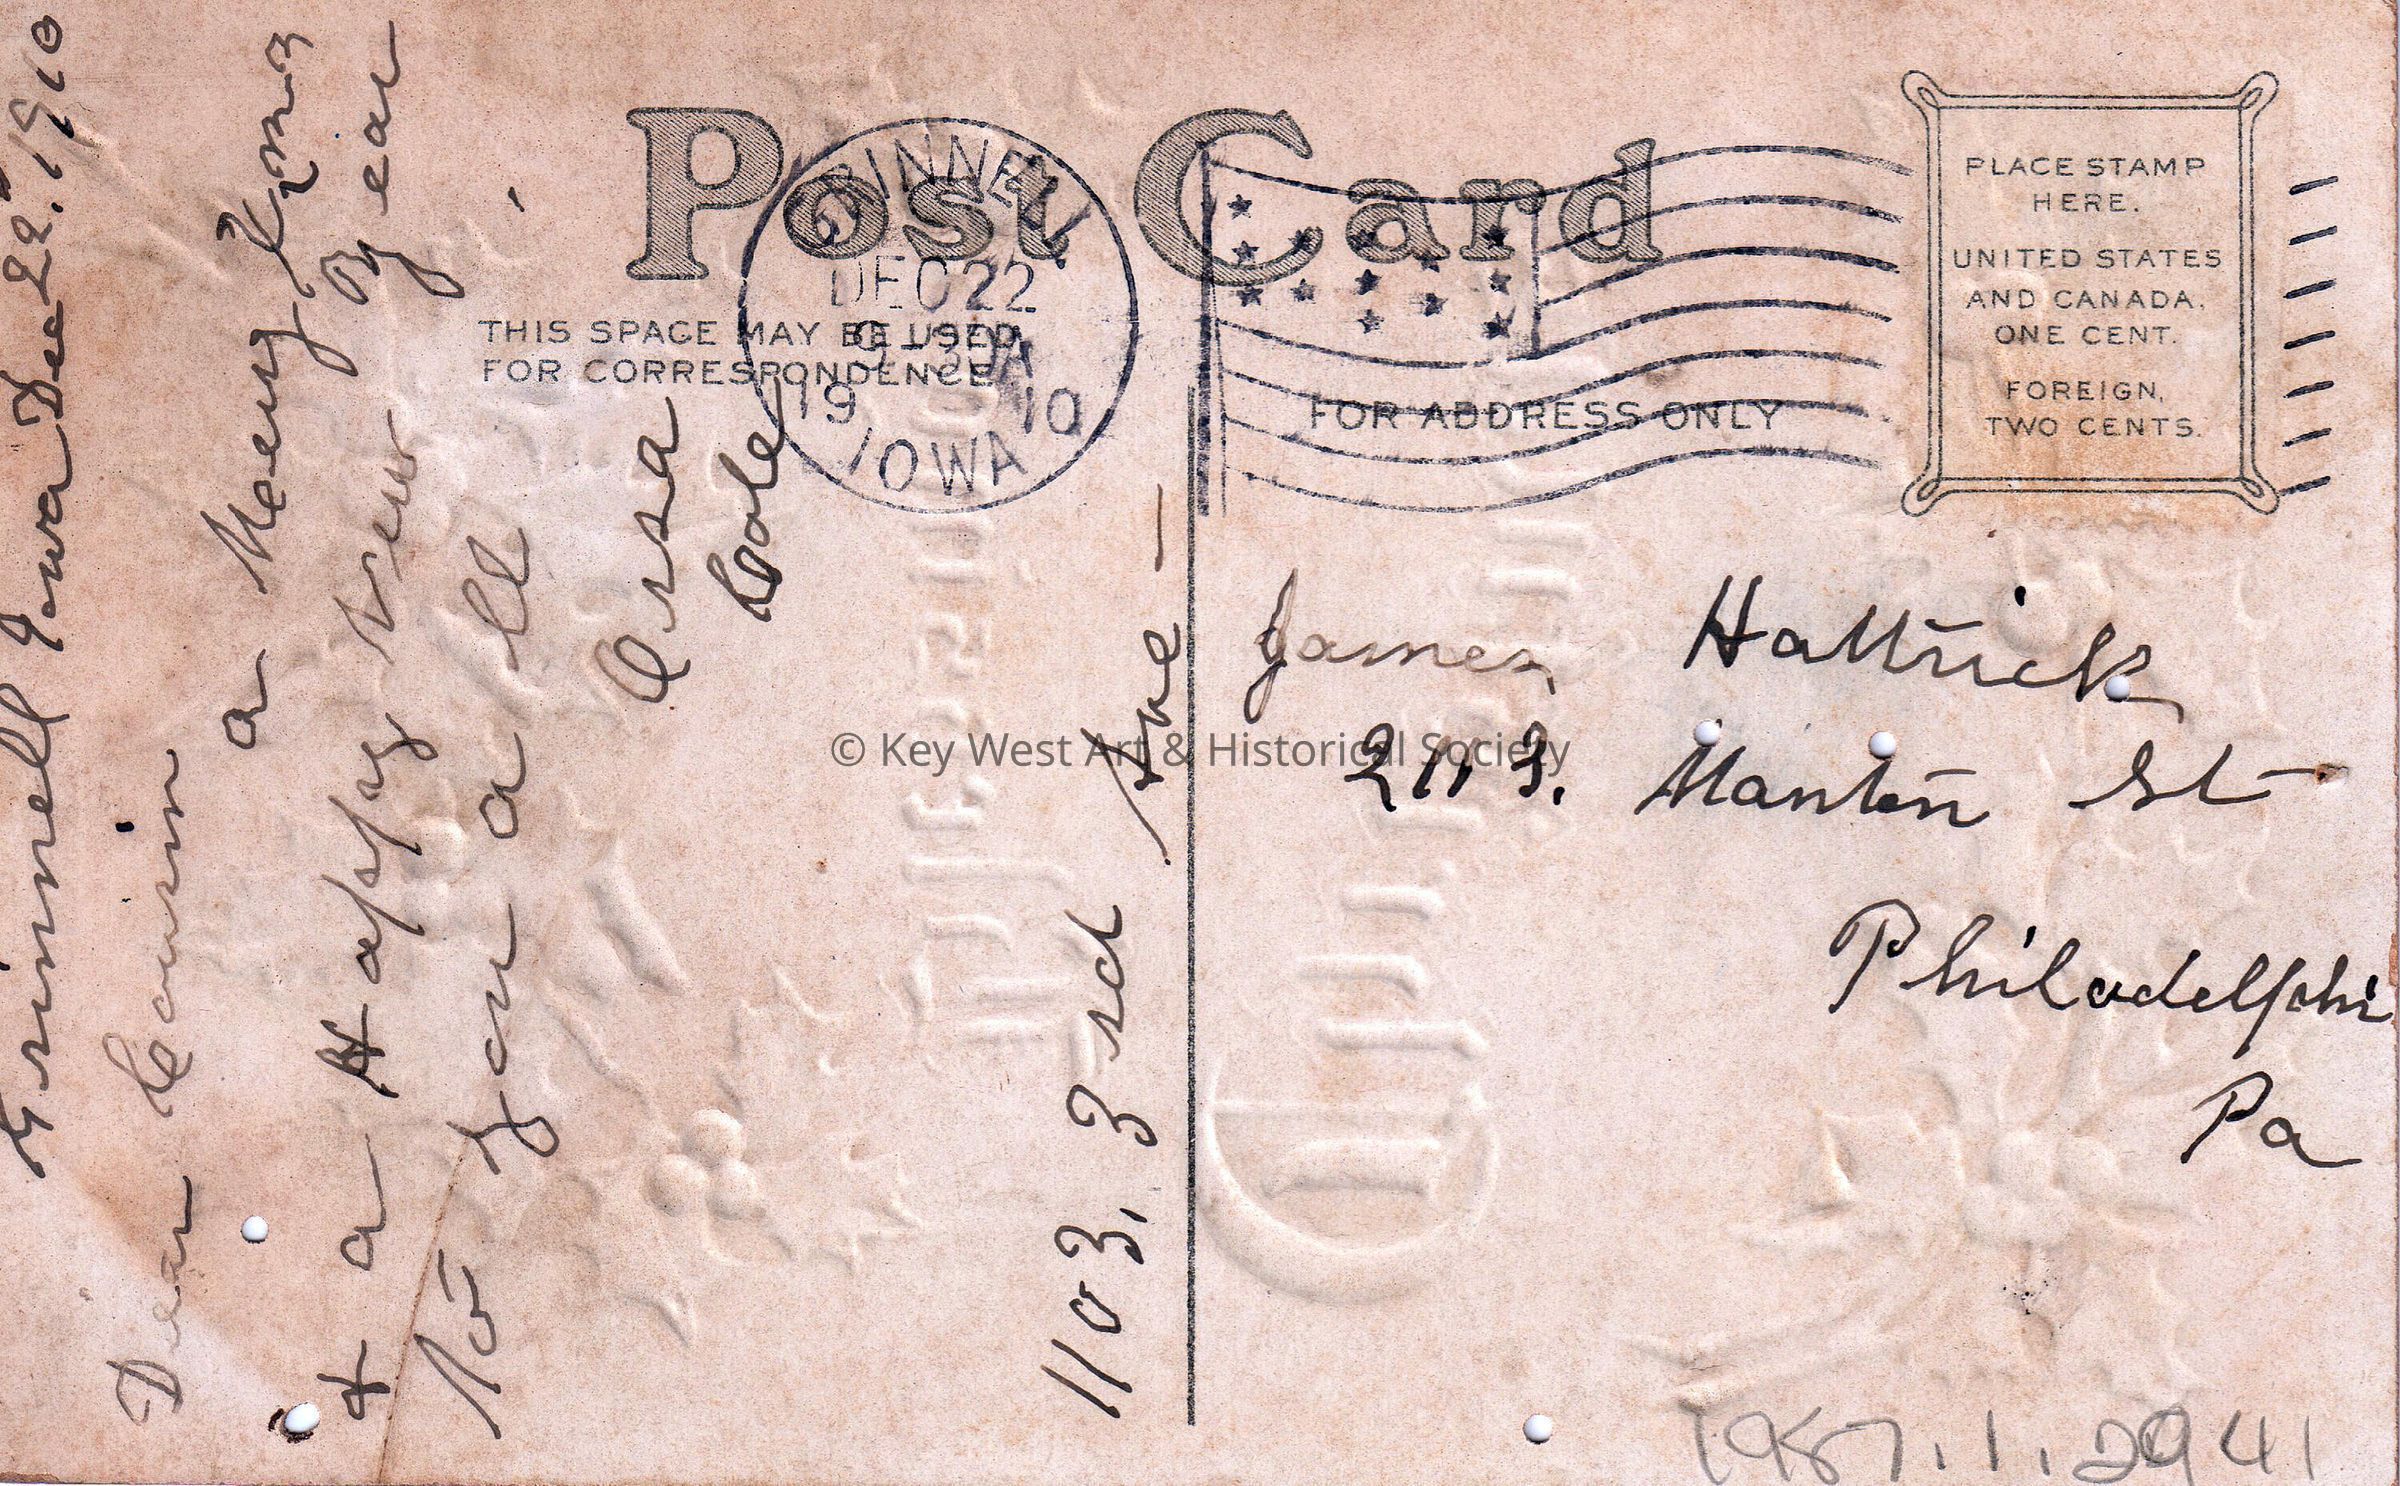 Grinnell Iowa Dec 22. 1910
Dear Cousin
a Merry Xmas
& a Happy New Year
To you all
Orsa
Cole
1103, 3rd Ave
Post Card
THIS SPACE MAY BE USED
FOR CORRESPONDENCE
GRINNELL
DEC 22
19 10
IOWA
FOR ADDRESS ONLY
PLACE STAMP
HERE.
UNITED STATES
AND CANADA.
ONE CENT.
FOREIGN,
TWO CENTS.
James Hattrick
2113. Manton St
Philadelphi
Pa
© Key West Art & Historical Society
1987.1.2941